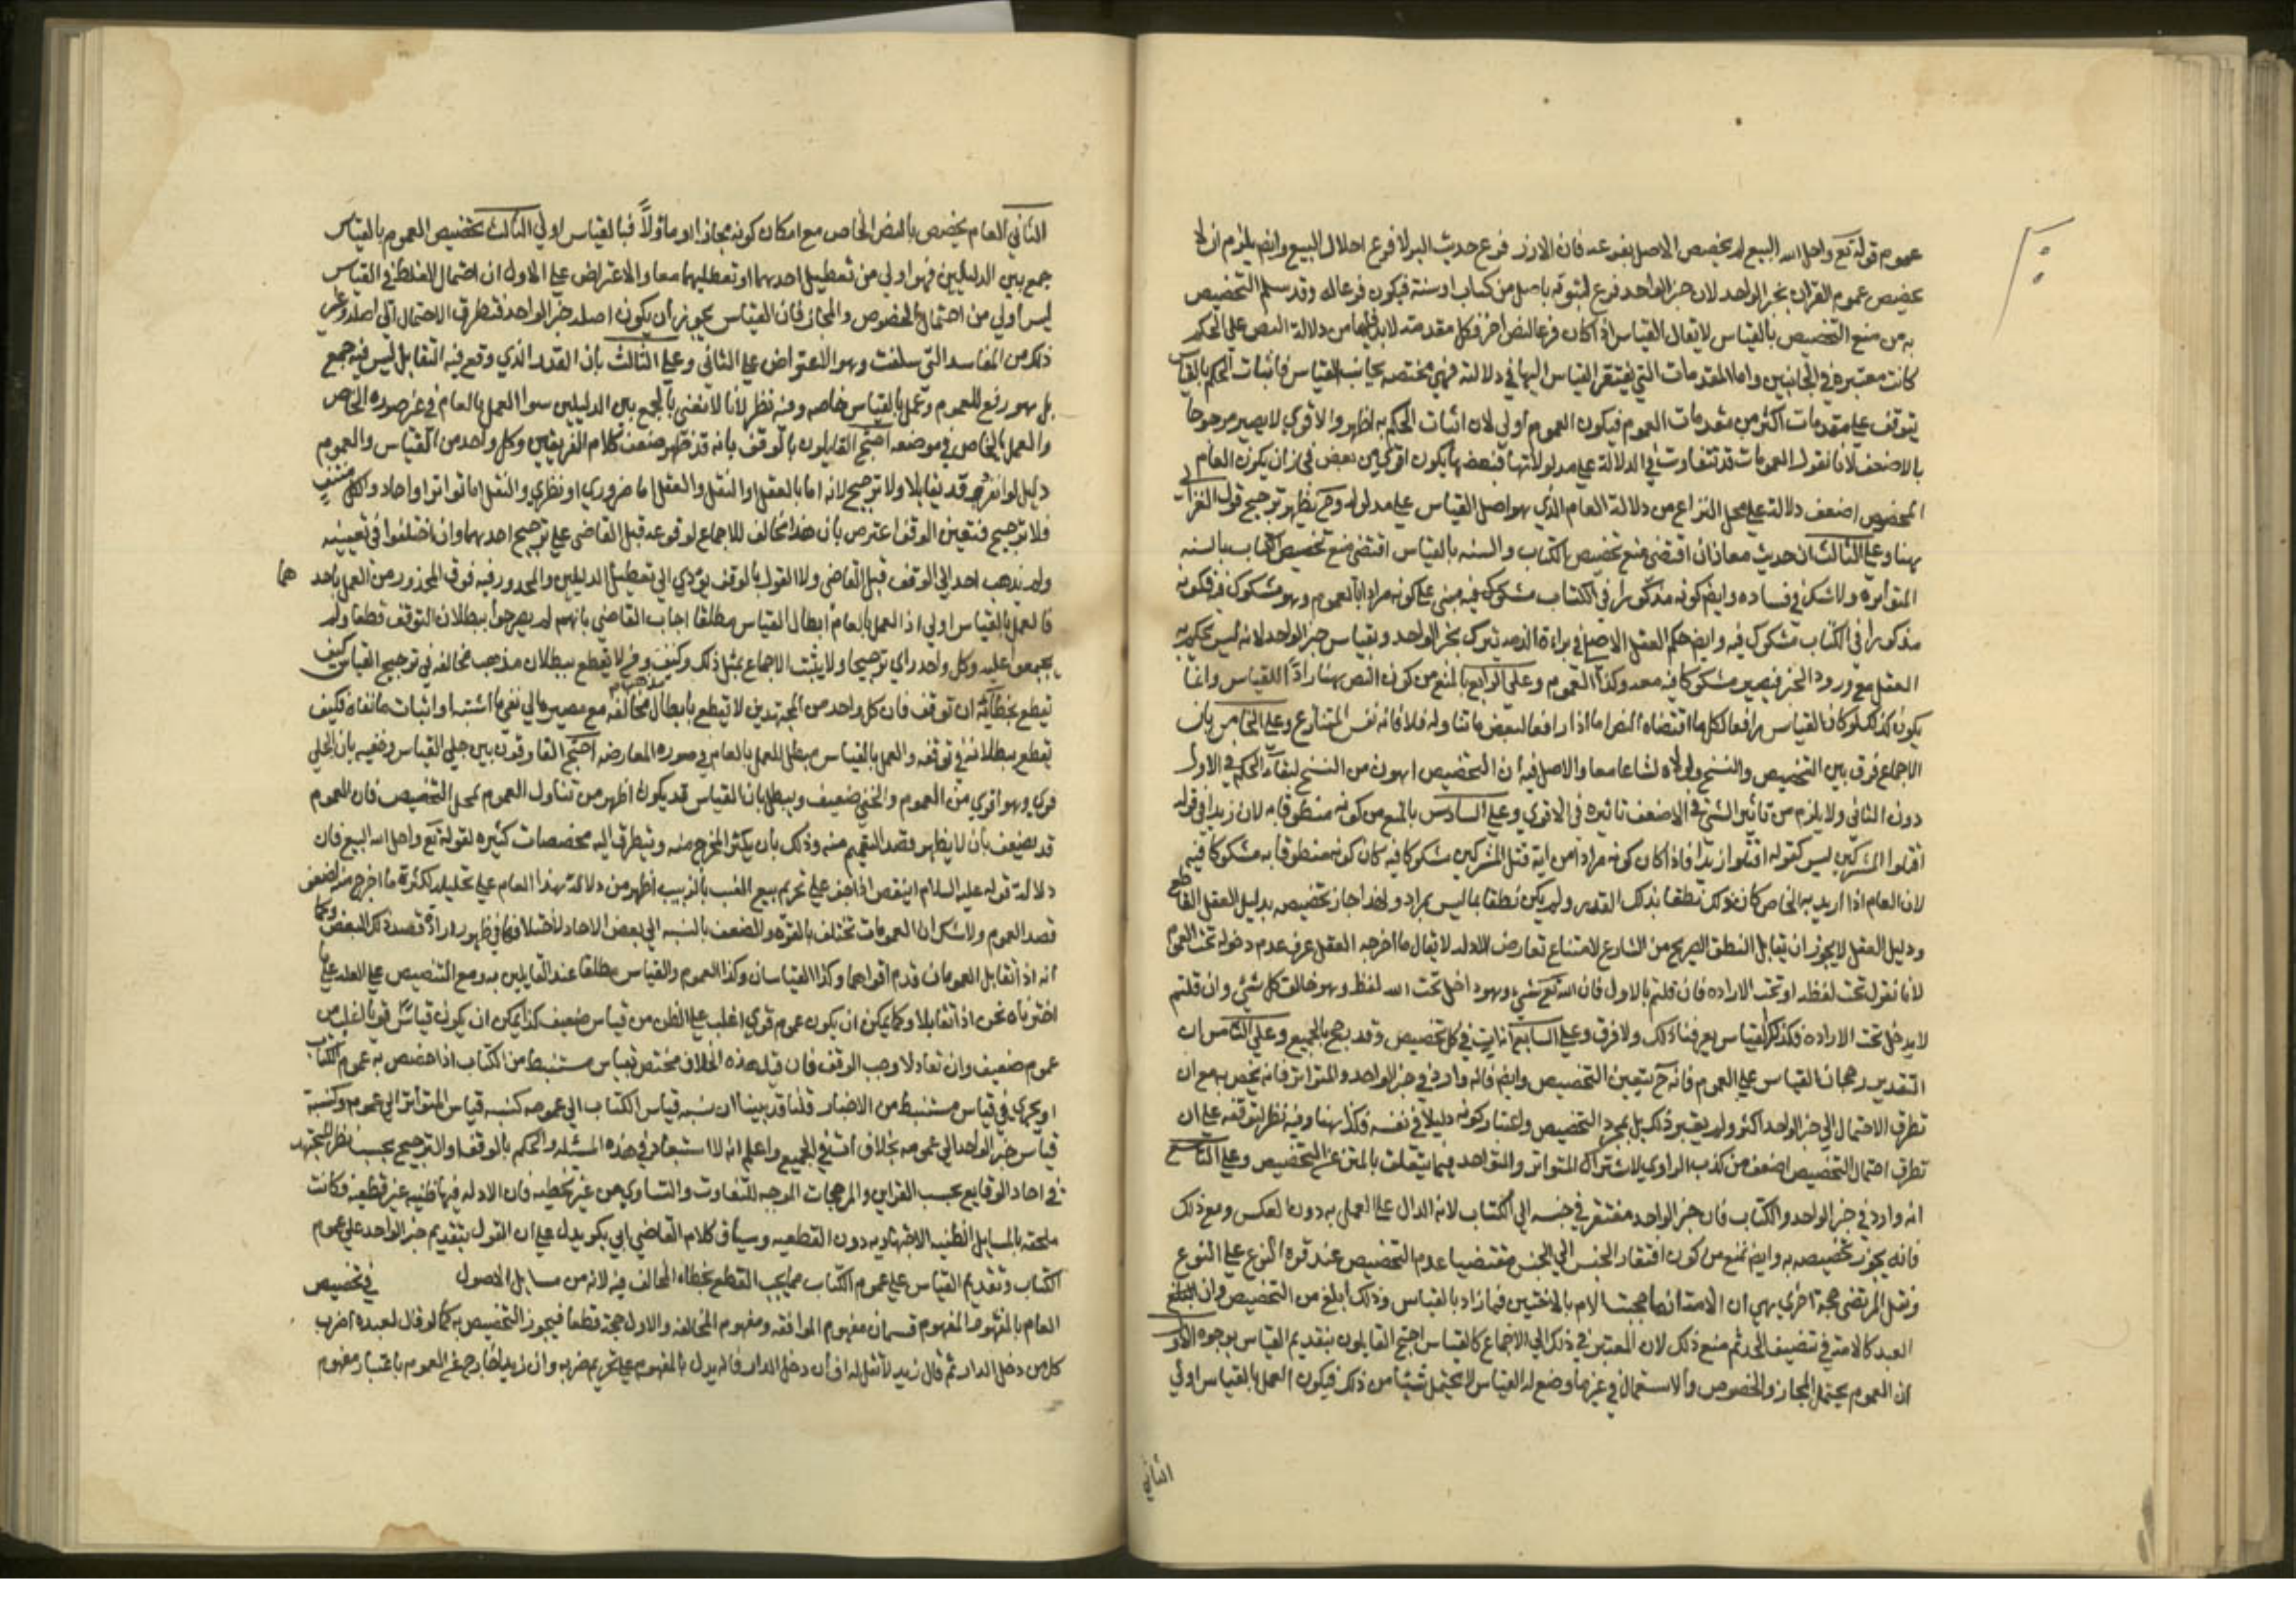 عموم قوله تع واحل الله البيع لم يخصص الاصل بفرعه فان الارز فرع حديث البر لا فرع احلال البيع وايض يلزم ان لا
يخصص عموم القران بخبر الواحد لان خبر الواحد فرع لثبوته باصل من كتاب او سنة فيكون فرعا له وقد سلم التخصيص
به من منع التخصيص بالقياس لا يقال القياس اذا كان فرعا لنص اخر فكل مقدمة لابد فيها من دلالة النص على الحكم
كانت معتبرة في الجانبين واما المقدمات التي يفتقر القياس اليها في دلالته فهي مختصه بجانب القياس فاثبات الحكم بالقياس
يتوقف على مقدمات اكثر من مقدمات العموم فيكون العموم اولى لان اثبات الحكم به اظهر والاقوى لا يصير مرجوحا
بالاضعف لانا نقول العمومات قد تتفاوت في الدلالة على مدلولاتها فبعضها يكون اقوى من بعض فجاز ان يكون العام
المخصوص اضعف دلالة على محل النزاع من دلالة العام الذي هو اصل القياس على مدلوله وح يظهر ترجيح قول الغزالي
هنا وعلى الثالث ان حديث معاذ ان اقتضى منع تخصيص الكتاب والسنه بالقياس اقتضى منع تخصيص الكتاب بالسنه
المتواتره ولا شك في فساده وايض كونه مذكورا في الكتاب مشكوك فيه مبني على كونه مرادا بالعموم وهو مشكوك فيه فكونه
مذكورا في الكتاب مشكوك فيه وايض حكم العقل الاصلي في براءة الذمه يترك بخبر الواحد وبقياس خبر الواحد لانه ليس يحكم به
العقل مع ورود الخبر فيصير مشكوكا فيه معه وكذا العموم وعلى الرابع بالمنع من كون النص هنا رادا للقياس وانما
يكون كذلك لو كان القياس رافعا لكل ما اقتضاه النص اما اذا رافعا لبعض ما تناوله فلا فانه نفس المتنازع وعلى الخامس بان
الاجماع فرق بين التخصيص والنسخ ولولاه لشاعا معا والاصل فيه ان التخصيص اهون من النسخ لبقاء الحكم في الاول
دون الثاني ولا يلزم من تاثير الشيء في الاضعف تاثيره في الاقوى وعلى السادس بالمنع من كونه منطوقا به لان زيدا في قوله
اقتلوا المشركين ليس كقوله اقتلوا زيدا فاذا كان كونه مرادا من اية قتل المشركين مشكوكا فيه كان كونه منطوقا به مشكوكا فيه
لان العام اذا اريد به الخاص كان ذلك نطقا بذلك القدر ولم يكن نطقا بما ليس بمراد ولهذا جاز تخصيصه بدليل العقل القاطع
ودليل العقل لا يجوز ان يقابل النطق الصريح من الشارع لامتناع تعارض الادلة لا يقال ما اخرجه العقل عرف عدم دخوله تحت العموم
لانا نقول تحت لفظه او تحت الاراده فان قلتم بالاول فان الله تع شيء وهو داخل تحت لفظ وهو خالق كل شيء وان قلتم
لا يدخل تحت الاراده فكذلك القياس يعرفنا ذلك ولا فرق وعلى السابع انه ات في كل تخصيص وقد رجح بالجميع وعلى الثامن ان
التقدير رجحان القياس على العموم فانه ح يتعين التخصيص وايض فانه وارد في خبر الواحد والمتواتر فانه يخص به مع ان
تطرق الاحتمال الى خبر الواحد اكثر ولم يعتبر ذلك بل بمجرد التخصيص واعتبار كونه دليلا في نفسه فكذا هنا وفيه نظر لتوقفه على ان
تطرق احتمال التخصيص اضعف من كذب الراوي لاشتراك المتواتر والواحد فيما يتعلق بالمتن من التخصيص وعلى التاسع
انه وارد في خبر الواحد والكتاب فان خبر الواحد مفتقر في جنسه الى الكتاب لانه الدال على العمل به دون العكس ومع ذلك
فانه يجوز تخصيصه به وايض نمنع من كون افتقار الجنس الى الجنس مقتضيا عدم التخصيص عند قوة النوع على النوع
ونقل المرتضى حجة اخرى هي ان الامة انما حجبت الام بالاختين فما زاد بالقياس وذلك ابلغ من التخصيص وان
العبد كالامة في تنصيف الحد ثم منع ذلك لان المعتبر في ذلك الى الاجماع كالقياس احتج القايلون بتقديم القياس بوجوه الاول
ان العموم يحتمل المجاز والخصوص والاستعمال في غير ما وضع له القياس لا يحتمل شيئا من ذلك فيكون العمل بالقياس اولى
الثاني
الثاني العام يخصص بالنص الخاص مع امكان كونه مجازا او ماولاً فبالقياس اولى الثالث تخصيص العموم بالقياس
جمع بين الدليلين فهو اولى من تعطيل احدهما او تعطيلهما معا والاعتراض على الاول ان احتمال الغلط في القياس
ليس اولى من احتمال الخصوص والمجاز فان القياس يجوز ان يكون اصله خبر الواحد فتطرق الاحتمال الى اصله وغير
ذلك من المفاسد التي سلفت وهو الاعتراض على الثاني وعلى الثالث بان القدر الذي وقع فيه التقابل ليس فيه جمع
بل هو رفع للعموم وعمل بالقياس خاصه وفيه نظر لانا لا نعني بالجمع بين الدليلين سوا العمل بالعام في غير صوره الخاص
والعمل بالخاص في موضعه احتج القايلون بالوقف بانه قد ظهر ضعف كلام الفريقين وكل واحد من القياس والعموم
دليل لو انفرد وقد تقابلا ولا ترجيح لانه اما بالعقل او النقل والعقل اما ضروري او نظري والنقل اما تواتر او احاد والكل منتف
فلا ترجيح فتعين الوقف اعترض بان هذا مخالف للاجماع لوقوعه قبل القاضي على ترجيح احدهما وان اختلفوا في تعيينه
ولم يذهب احد الى الوقف قبل القاضي ولا القول بالوقف يؤدي الى تعطيل الدليلين والمحذور فيه فوق المحذور من العمل باحد هما
فالعمل بالقياس اولى اذ العمل بالعام ابطال القياس مطلقا اجاب القاضي بانهم لم يصرحوا ببطلان التوقف قطعا ولم
يجمعوا عليه وكل واحد راى ترجيحا ولا يثبت الاجماع بمثل ذلك وكيف وفر لا يقطع ببطلان مذهب مخالفه في ترجيح القياس كيف
تقطع بخطائه ان توقف فان كل واحد من المجتهدين لا يقطع بابطال مذهب مخالفه مع مصيره الى نفي ما اثبته او اثبات ما نفاه فكيف
يقطع ببطلانه في توقفه والعمل بالقياس مبطل العمل بالعام في صوره المعارضه احتج الفارقون بين جلي القياس وخفيه بان الجلي
قوي وهو اقوى من العموم والخفي ضعيف ويبطل بان القياس قد يكون اظهر من تناول العموم لمحل التخصيص فان العموم
قد يضعف بان لا يظهر قصد التعميم منه وذلك بان يكثر المخرج منه ويتطرق اليه مخصصات كثيره لقوله تع واحل الله البيع فان
دلالة قوله عليه السلام اينقص اذا جف على تحريم بيع العنب بالزبيب اظهر من دلالة هذا العام على تحليله لكثرة ما اخرج منه لضعف
قصد العموم ولا شك ان العمومات تختلف بالقوة والضعف بالنسبه الى بعض الاحاد لاختلافها في ظهور ارادة قصد ذلك البعض وكما
انه اذا تقابل العمومان قدم اقواهما وكذا القياسان وكذا العموم والقياس مطلقا عند القايلين به ومع التنصيص على العلة على ما
اخترناه نحن اذا تقابلا وكما يمكن ان يكون عموم قوي اغلب على الظن من قياس ضعيف كذا يمكن ان يكون قياسا قويا اغلب من
عموم ضعيف وان تعادلا وجب الوقف فان قيل هذه الخلاف مختص بقياس مستنبط من الكتاب اذا خصص به عموم الكتاب
او يجري في قياس مستنبط من الاخبار قلنا قد بينا ان نسبه قياس الكتاب الى عمومه كنسبه قياس المتواتر الى عمومه وكنسبة
قياس خبر الواحد الى عمومه بخلاف في الجميع واعلم انه لا استبعاد في هذه المسئله والحكم بالوقف او الترجيح بحسب نظر المجتهد
في احاد الوقايع بحسب القراين والمرجحات الموجبه للتفاوت والتساوي من غير تخطيه فان الادله فيها ظنيه غير قطعيه فكانت
ملحقه بالمسايل الظنيه الاجتهاديه دون القطعيه وسياق كلام القاضي ابي بكر يدل على ان القول بتقديم خبر الواحد على عموم
الكتاب وتقديم القياس على عموم الكتاب مما يجب القطع بخطاء المخالف فيه لانه من مسايل الاصول في تخصيص
العام بالمفهوم المفهوم قسمان مفهوم الموافقه ومفهوم المخالفه والاول حجة قطعا فيجوز التخصيص به كما لو قال لعبده اضرب
كل من دخل الدار ثم قال زيد لا تقل له اف ان دخل الدار فانه يدل بالمفهوم على تحريم ضربه وان زيدا خارج عن العموم باعتبار مفهوم